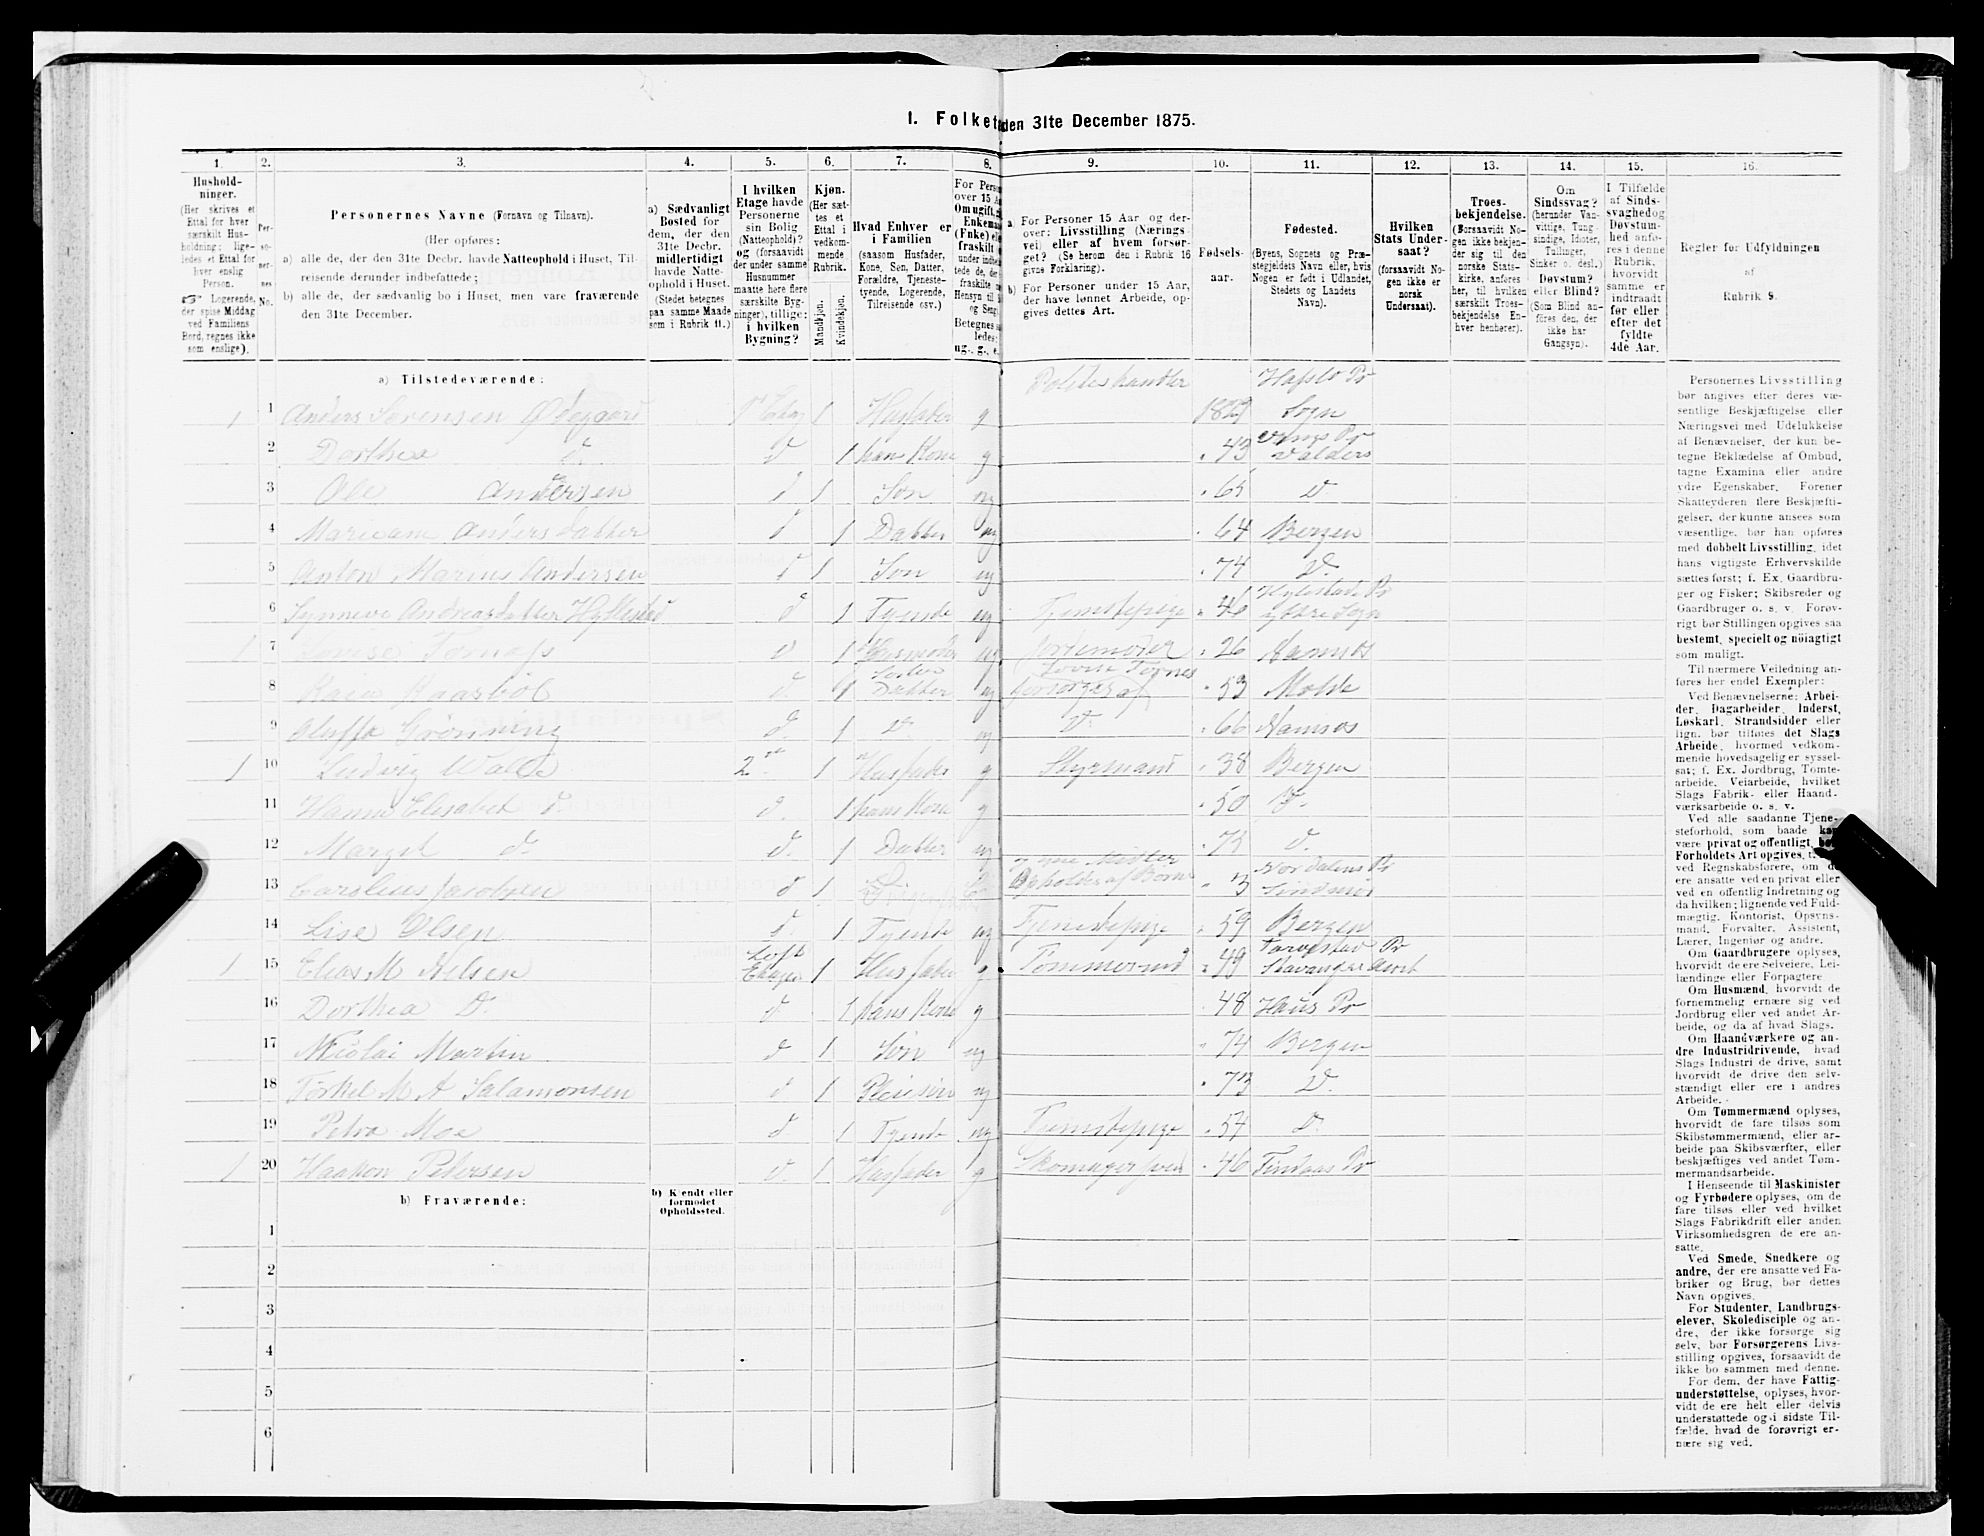 I. Folket den 31te December 1875.
1. 2. 3. 4. 5. 6. 7. 8. 9. 10. 11. 12. 13. 14. 15. 16.
Hushold-
ninger.
(Her skrives et
Ettal for hver
særskilt Hus-
holdning; lige-
ledes et Ettal for
hver enslig
Person.
☞ Logerende,
der spise Middag
ved Familiens
Bord, regnes ikke
som enslige).
Per-
so-
ner-
nes
No.
Personernes Navne (Fornavn og Tilnavn).
(Her opføres:
a) alle de, der den 31te Decbr. havde Natteophold i Huset, Til-
reisende derunder indbefattede;
b) alle de, der sædvanlig bo i Huset, men vare fraværende
den 31te December.
a) Sædvanligt
Bosted for
dem, der den
31te Decbr.
midlertidigt
havde Natte-
ophold i Huset.
(Stedet betegnes
paa samme Maade
som i Rubrik 11.)
I hvilken
Etage havde
Personerne
sin Bolig
(Natteophold)?
og (forsaavidt
der under samme
Husnummer
maatte høre flere
særskilte Byg-
ninger), tillige:
i hvilken
Bygning?
Kjøn.
(Her sæt-
tes et
Ettal i
vedkom-
mende
Rubrik.
Mandkjøn.
Kvindekjøn.
Hvad Enhver er
i Familien
(saasom Husfader,
Kone, Søn, Datter,
Forældre, Tjeneste-
tyende, Logerende,
Tilreisende osv.)
For Perso
over 15 A
Om ugift, g
Enkema
(Enke) el
fraskilt
under indbe
tede de, der
fraskilte
Hensyn til
og Seng
Betegnes s
ledes:
ug., g., e.
a. For Personer 15 Aar og der-
over: Livsstilling (Nærings-
vei) eller af hvem forsør-
get? (Se herom den i Rubrik 16
givne Forklaring).
b) For Personer under 15 Aar,
der have lønnet Arbeide, op-
gives dettes Art.
Fødsels-
aar.
Fødested.
(Byens, Sognets og Præ-
stegjeldets Navn eller, hvis
Nogen er født i Udlandet,
Stedets og Landets
Navn).
Hvilken
Stats Under-
saat?
(forsaavidt No-
gen ikke er
norsk
Undersaat).
Troes-
bekjendelse.
(Forsaavidt No-
gen ikke bekjen-
der sig til den
norske Stats-
kirke, anføres
her, til hvilken
særskilt Troes-
bekjendelse En-
hver henhører).
Om
Sindssvag?
(herunder Van-
vittige, Tung-
sindige, Idioter,
Tullinger,
Sinker o. desl.)
Døvstum?
eller Blind?
(Som Blind an-
føres den, der
ikke har
Gangsyn).
I Tilfælde
af Sinds-
svaghed og
Døvstum-
hed anfø-
res i denne
Rubrik,
hvorvidt
samme er
indtraadt
før eller
efter det
fyldte
4de Aar.
Regler for Udfyldningen
af
Rubrik 9.
a) Tilstedeværende:
Hafslo Pr
1 1 Anders Sørensen Ødegaard 1 Husfader g 1829 Sogn
Vangs Pr
2 Dorthea d d 1 hans Kone g 43 Valders
3 Ole Andersen d 1 Søn ug 65 d
4 Mariane Andersdatter d 1 Datter ug 64 Bergen
5 Anton Marius Andersen d 1 Søn ug 74 d.
6 Synneve Andreasdatter Hyllestad d 1 Tyende ug Tjenestepige 46 Ydre Sogn
1 7 Lovise Tornæs d 1 Husmoder ug Jordemoder 26 Namsos
Lovise Tornes
8 d. 1 Datter ug forsørges af 53 Molde
9 Grønning d. 1 d. ug d. 66 Namsos
1 10 Ludvig 2 1 Husfader g Styrmand 38 Bergen
11 Hanna Elisabet d. d. 1 hans Kone g 50 d.
12 Margit d. d. 1 Datter ug 73 d.
Nordalens Pr
13 Jacobsen d 1 af Børn 3 Søndmør
14 Lise Olsen d. 1 Tyende ug Tjenestepige 59 Bergen
Loft Pr
1 15 Elias M Nilsen Etage 1 Husfader g Tømmermd 49 Stavanger Amt
16 Dorthea d. d 1 hans Kone g 48 Haus Pr
17 Nicolai Martin d 1 Søn ug 74 Bergen
18 Torkel M A Salamonsen d 1 Pleiesøn ug 73 d.
19 Petra Moe d 1 Tyende ug Tjenestepige 54 d.
1 20 Haakon Petersen d. 1 Husfader g Skomagersvend 46 Lindaas Pr
b) Fraværende:
b) Kjendt eller
formodet
Opholdssted.
1
2
3
4
5
6
Personernes Livsstilling
bør angives efter deres væ-
sentlige Beskjæftigelse eller
Næringsvei med Udelukkelse
af Benævnelser, der kun be-
tegne Beklædelse af Ombud,
tagne Examina eller andre
ydre Egenskaber. Forener
Skatteyderen flere Beskjæfti-
gelser, der kunne ansees som
væsentlige, bør han opføres
med dobbelt Livsstilling, idet
hans vigtigste Erhvervskilde
sættes først; f. Ex. Gaardbru-
ger og Fisker; Skibsreder og
Gaardbruger o. s. v. Forøv-
rigt bør Stillingen opgives saa
bestemt, specielt og nöiagtigt
som muligt.
Til nærmere Veiledning an-
føres her endel Exempler:
Ved Benævnelserne: Arbei-
der, Dagarbeider, Inderst,
Løskarl, Strandsidder eller
lign. bør tilføies det Slags
Arbeide, hvormed vedkom-
mende hovedsagelig er syssel-
sat; f. Ex. Jordbrug, Tomte-
arbeide, Veiarbeide, hvilket
Slags Fabrik- eller Haand-
værksarbeide o. s. v.
Ved alle saadanne Tjene-
steforhold, som baade kan
være privat og offentligt, bør
Forholdets Art opgives, t.
ved Regnskabsførere, om de
ere ansatte ved en privat eller
ved en offentlig Indretning og
da hvilken; lignende ved Fuld-
mægtig, Kontorist, Opsyns-
mand, Forvalter, Assistent,
Lærer, Ingeniør og andre.
Om Gaardbrugere oplyses,
hvorvidt de ere Selveiere, Lei-
lændinge eller Forpagtere
Om Husmænd, hvorvidt de
fornemmelig ernære sig ved
Jordbrug eller ved andet Ar-
beide, og da af hvad Slags.
Om Haandværkere og an-
dre Industridrivende, hvad
Slags Industri de drive, samt
hvorvidt de drive den selv-
stændigt eller ere i andres
Arbeide.
Om Tømmermænd oplyses,
hvorvidt de fare tilsøs som
Skibstømmermænd, eller ar-
beide paa Skibsværfter, eller
beskjæftiges ved andet Tøm-
mermandsarbeide.
I Henseende til Maskinister
og Fyrbødere oplyses, om de
fare tilsøs eller ved hvilket
Slags Fabrikdrift eller anden
Virksomhedsgren de ere an-
satte.
Ved Smede, Snedkere og
andre, der ere ansatte ved Fa-
briker og Brug, bør dettes
Navn opgives.
For Studenter, Landbrugs-
elever, Skoledisciple og an-
dre, der ikke forsørge sig
selv, bør Forsørgerens Livs-
stilling opgives, forsaavidt de
ikke bo sammen med denne.
For dem, der have Fattig-
understøttelse, oplyses, hvor-
vidt de ere helt eller delvis
understøttede og i sidste Til-
fælde, hvad de forøvrigt er-
nære sig ved.